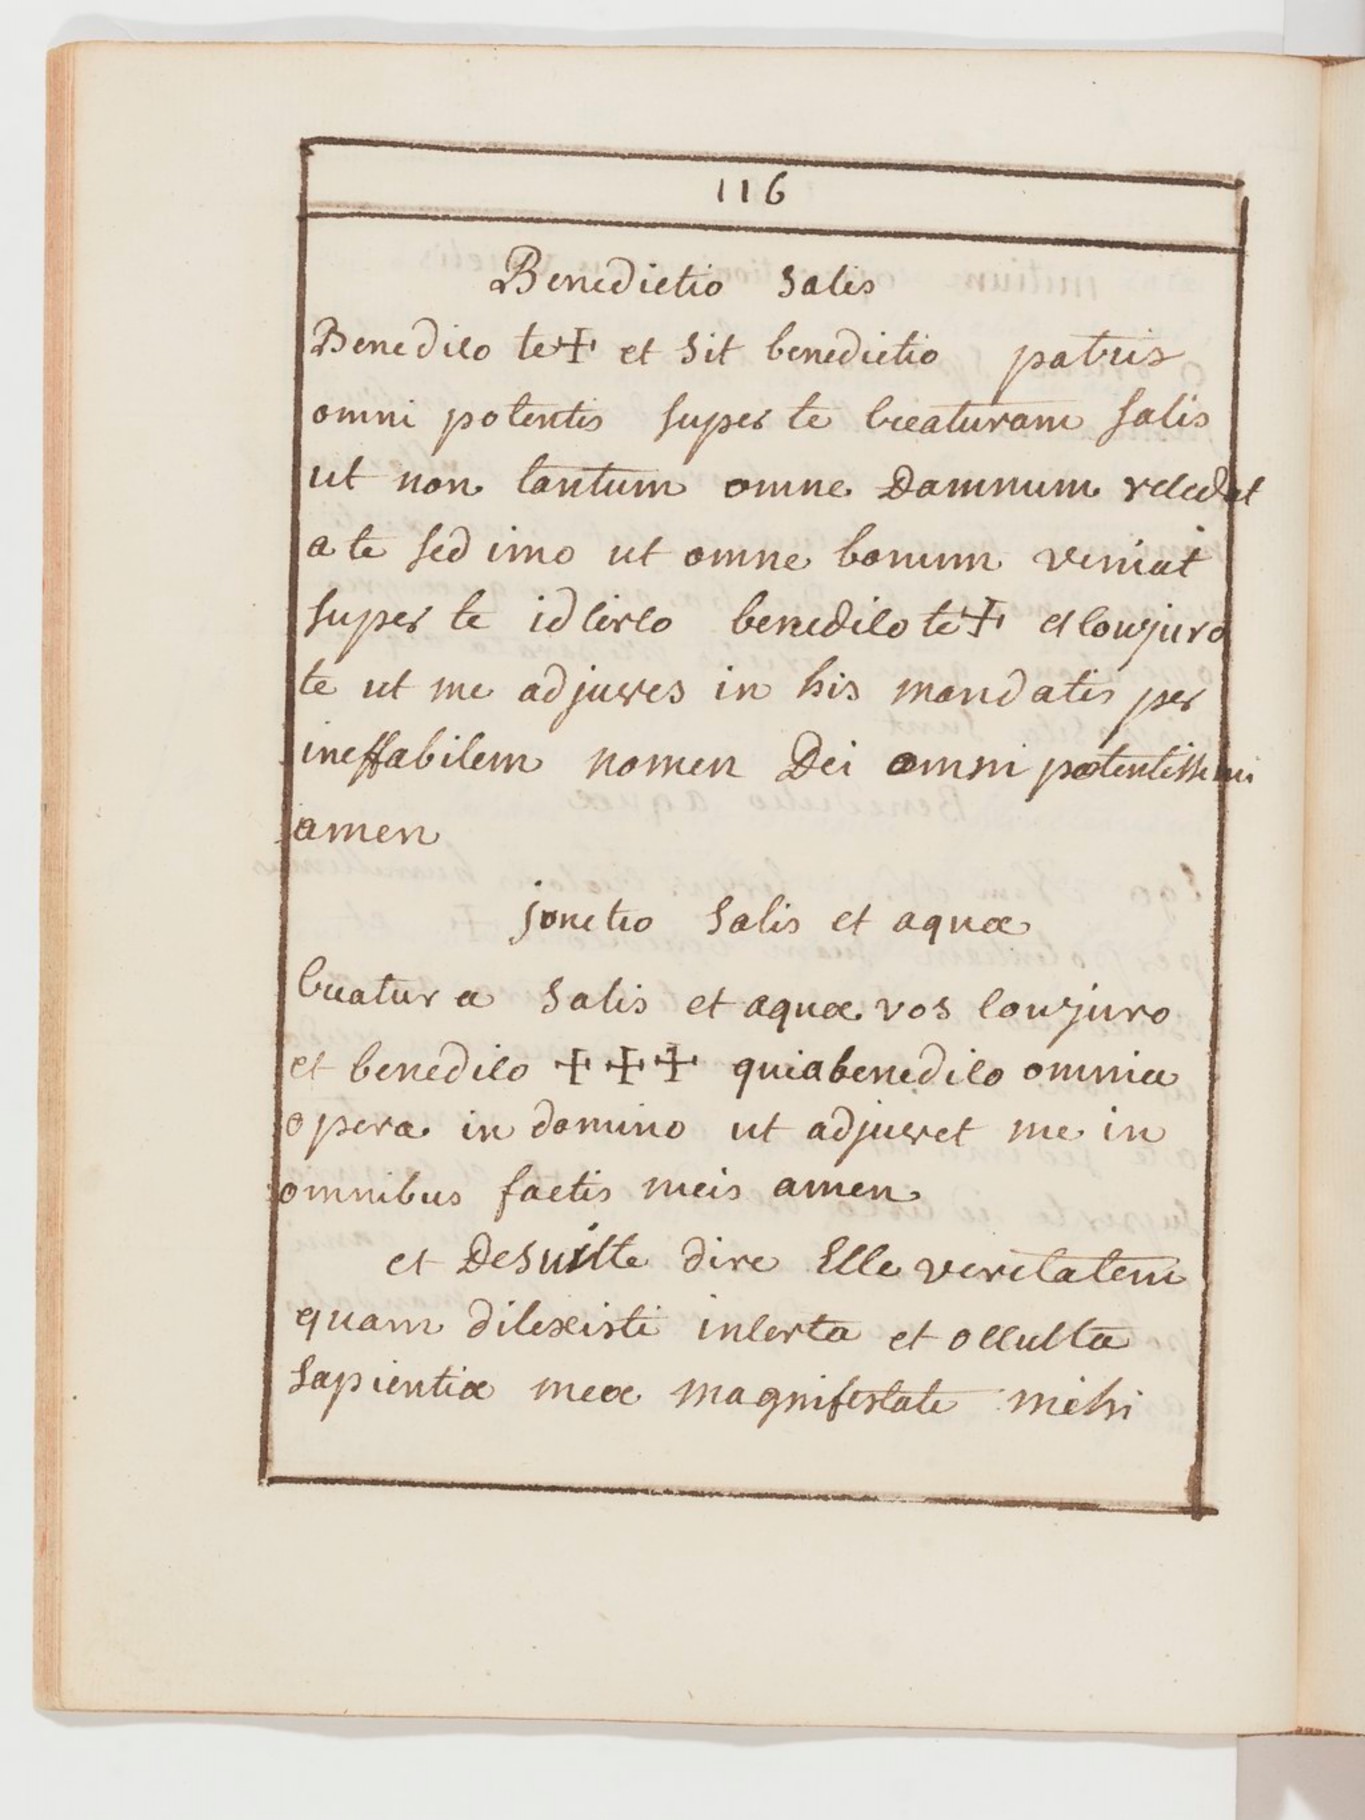 116
Benedictio Salis
Benedico te ✢ et sit benedictio patris
omni potentis super te creaturam salis
ut non tantum omne Damnum recedat
a te sed imo ut omne bonum veniat
super te idcirco benedico te ✢ et conjuro
te ut me adjuves in his mandatis per
ineffabilem nomen Dei omni potentissimi
amen
jonctio Salis et aquæ
Creatura Salis et aquæ vos conjuro
et benedico ✢ ✢ ✢ quia benedico omnia
opera in domino ut adjuvet me in
omnibus factis meis amen
et De suitte dire Ecce veritatem
quam dilexisti incerta et occulta
sapientiæ meæ magnifestate mihi